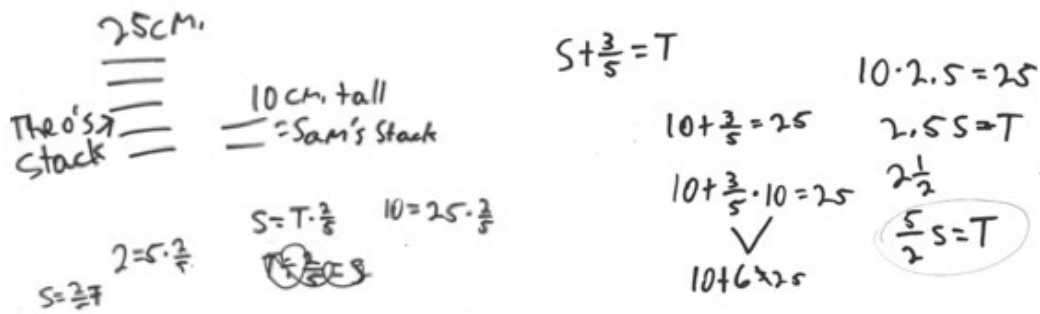 25cm.
Theo's
Stack
10 cm. tall
=Sam's Stack
S=T·2/5
10=25·2/5
2=5·2/5
S+3/5=T
10+3/5=25
10+3/5·10=25
10·2.5=25
2.5S=T
2 1/2
5/2 S=T